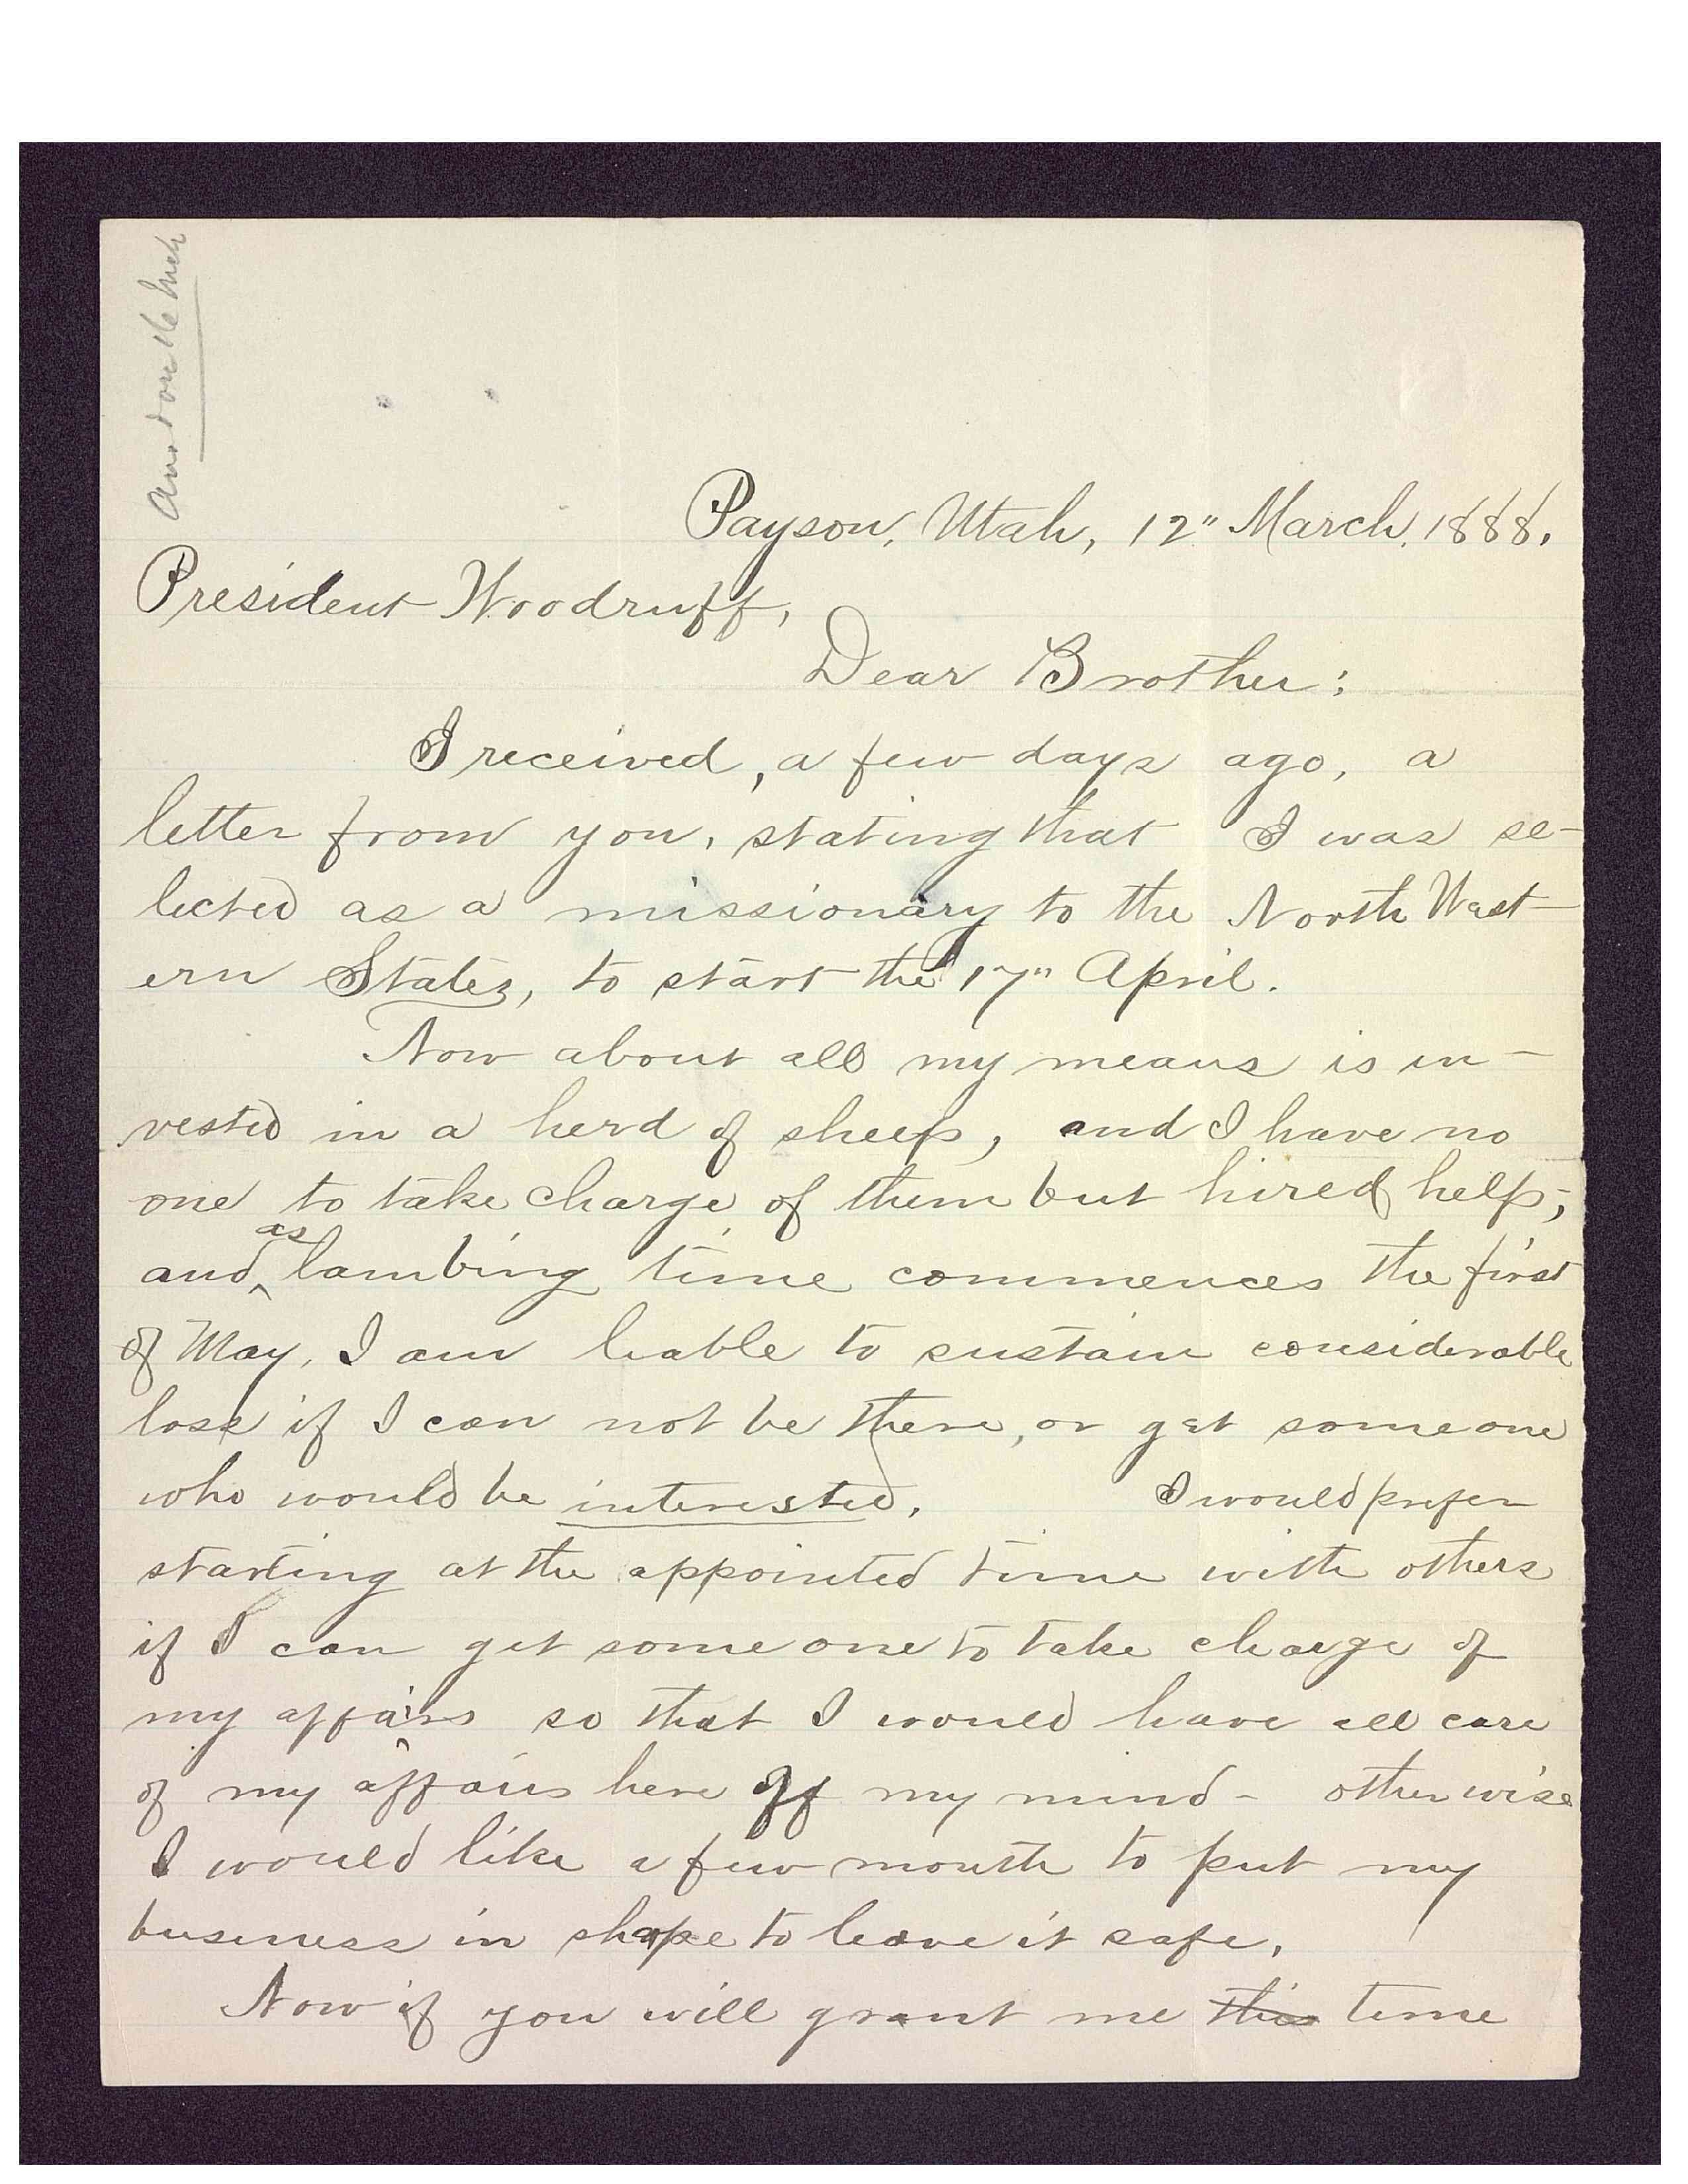 Payson, Utah, 12" March, 1888.
President Woodruff,
Dear Brother:
I received, a few days ago, a
letter from you, stating that I was se-
lected as a missionary to the North West-
ern States, to start the 17" April.
Now about all my means is in-
vested in a herd of sheep, and I have no
one to take charge of them but hired help;
and as lambing time commences the first
of May, I am liable to sustain considerable
loss if I can not be there, or get some one
who would be interested. I would prefer
starting at the appointed time with others
if I can get some one to take charge of
my affairs so that I would have all care
of my affairs here off my mind - otherwise
I would like a few month to put my
business in shape to leave it safe.
Now if you will grant me this time